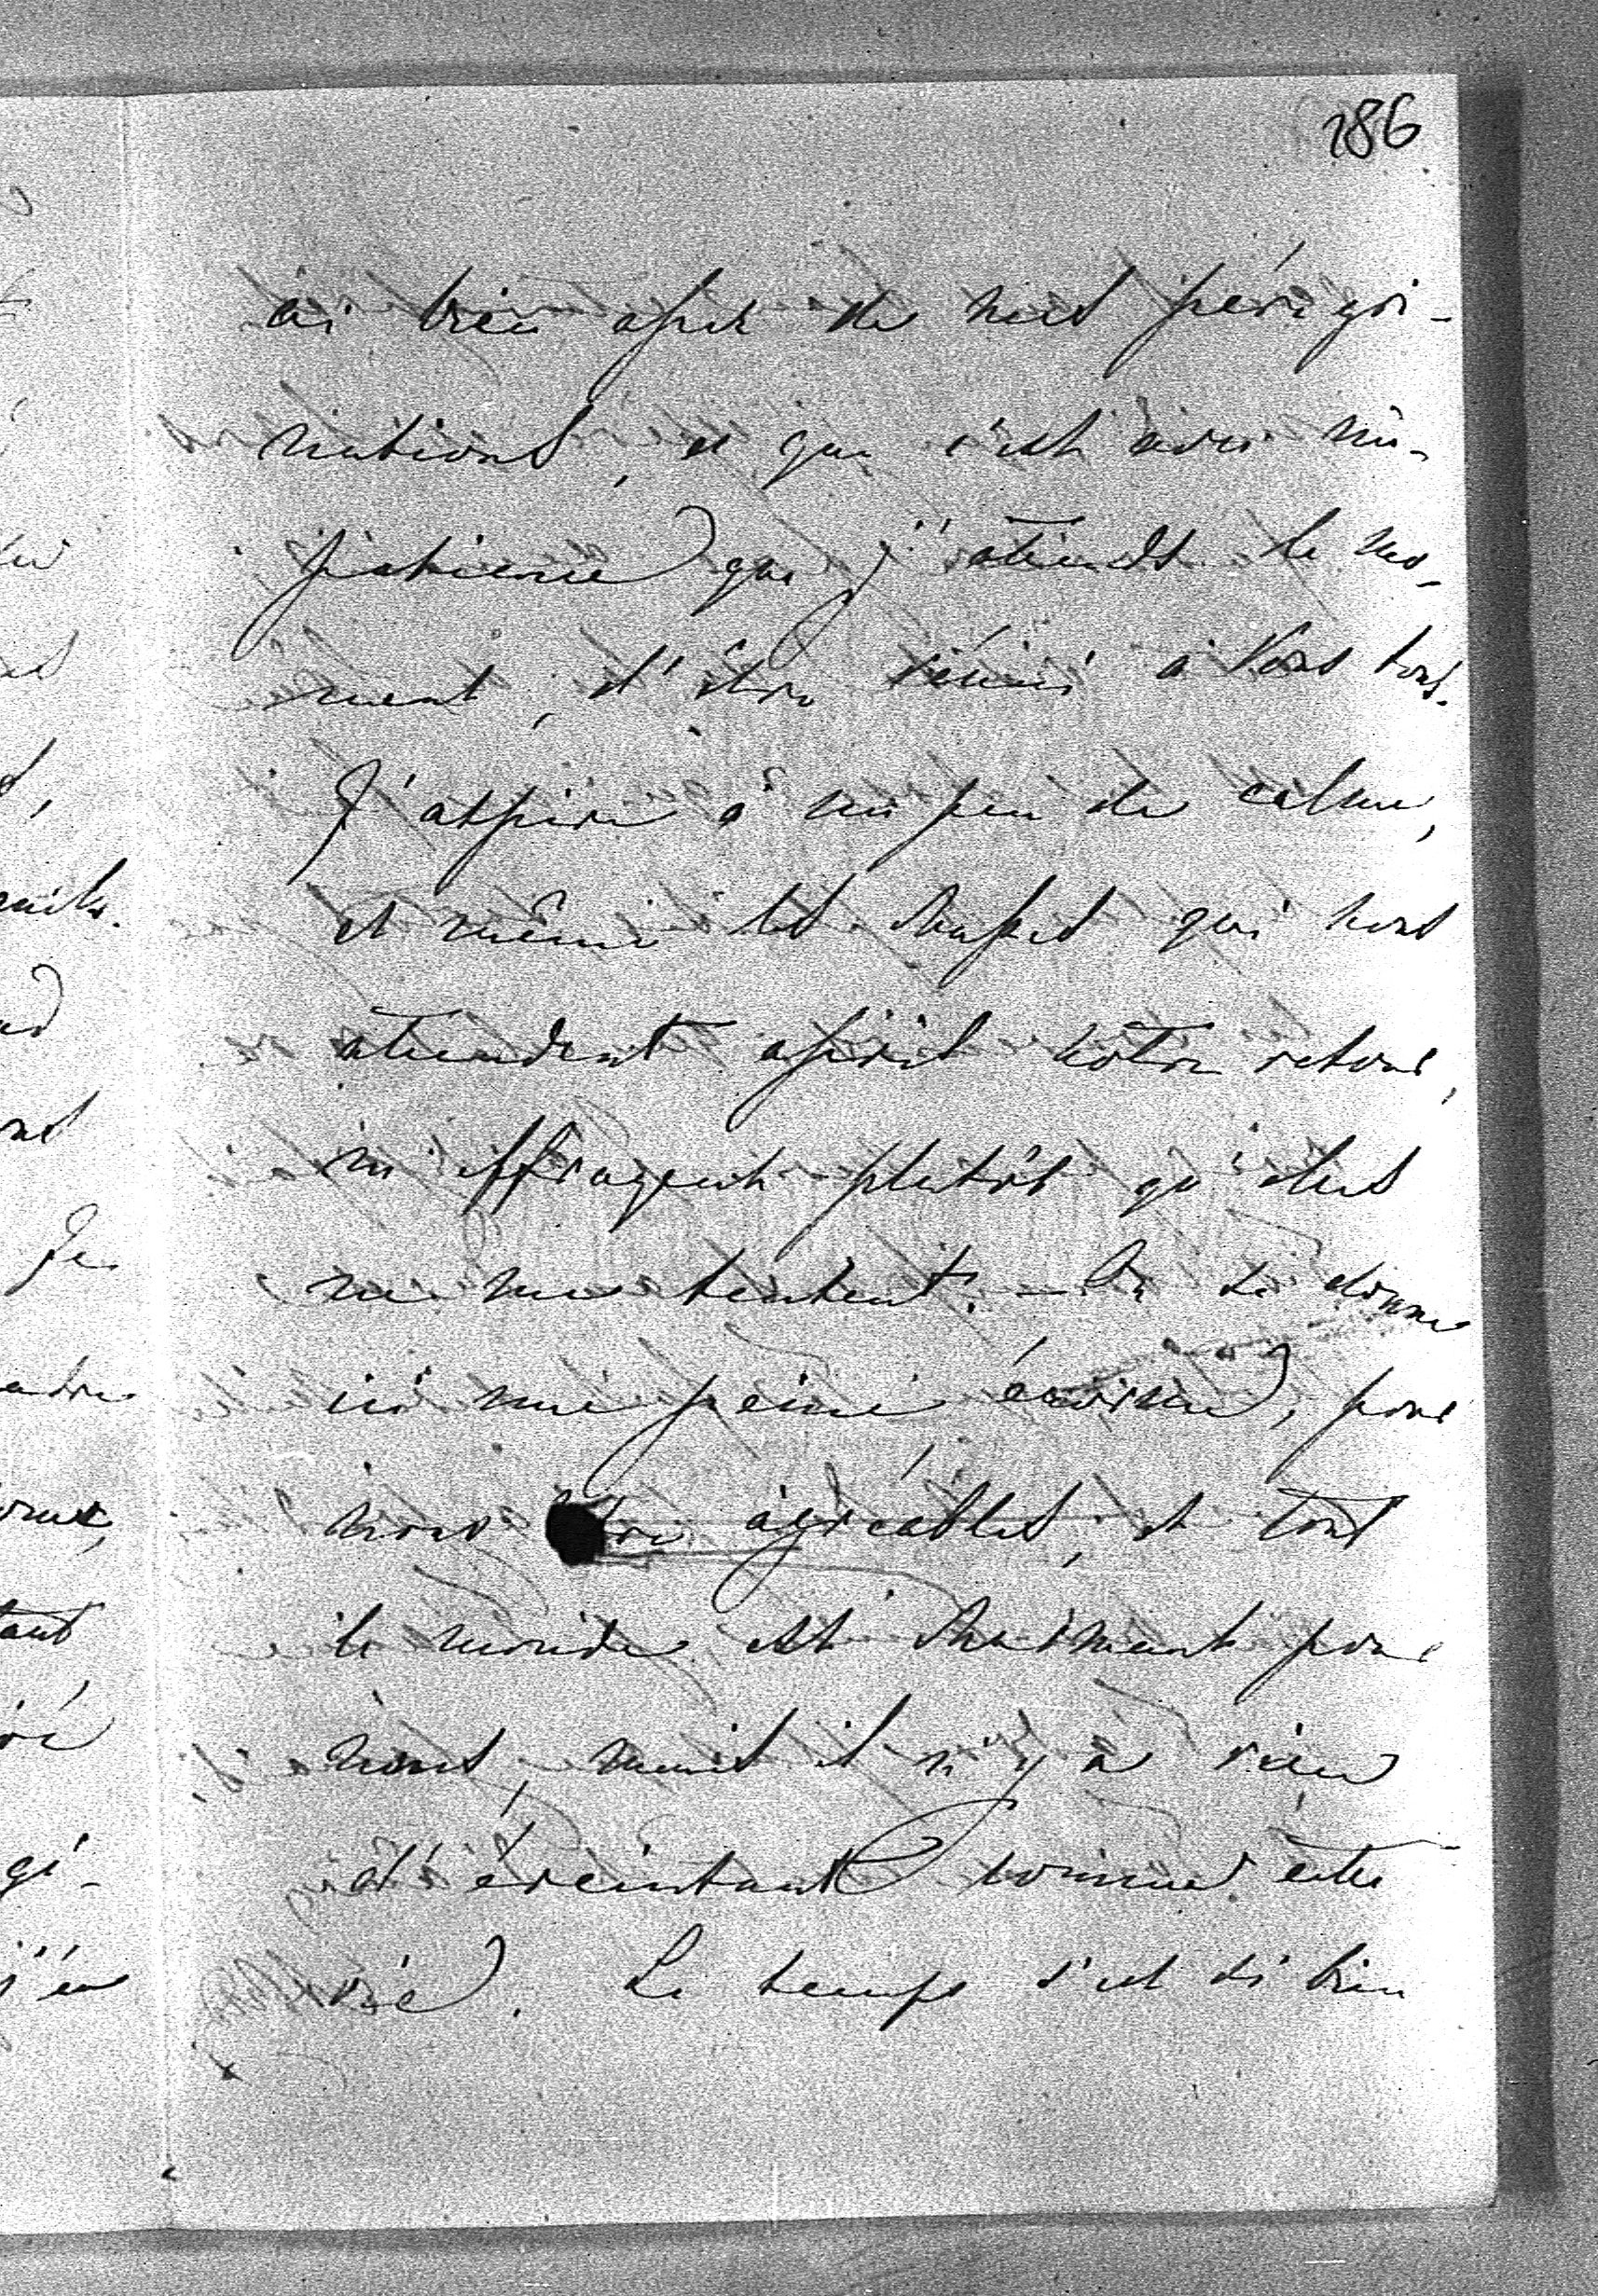 186
ai bien assez de nos pérégri-
nations, et que c'est avec im-
patience que j'attends le mo-
ment, d'être réuni à Vous tous.
J'aspire à un peu de calme,
et même les chasses qui nous
attendent après notre retour,
m'effrayent plutôt qu'elles
ne me tentent. — On se donne
ici une peine énorme, pour
nous être agréables, et tout
le monde est charmant pour
nous, mais il n'y a rien
d'éreintant comme cette
vie. Le temps s'est si bien